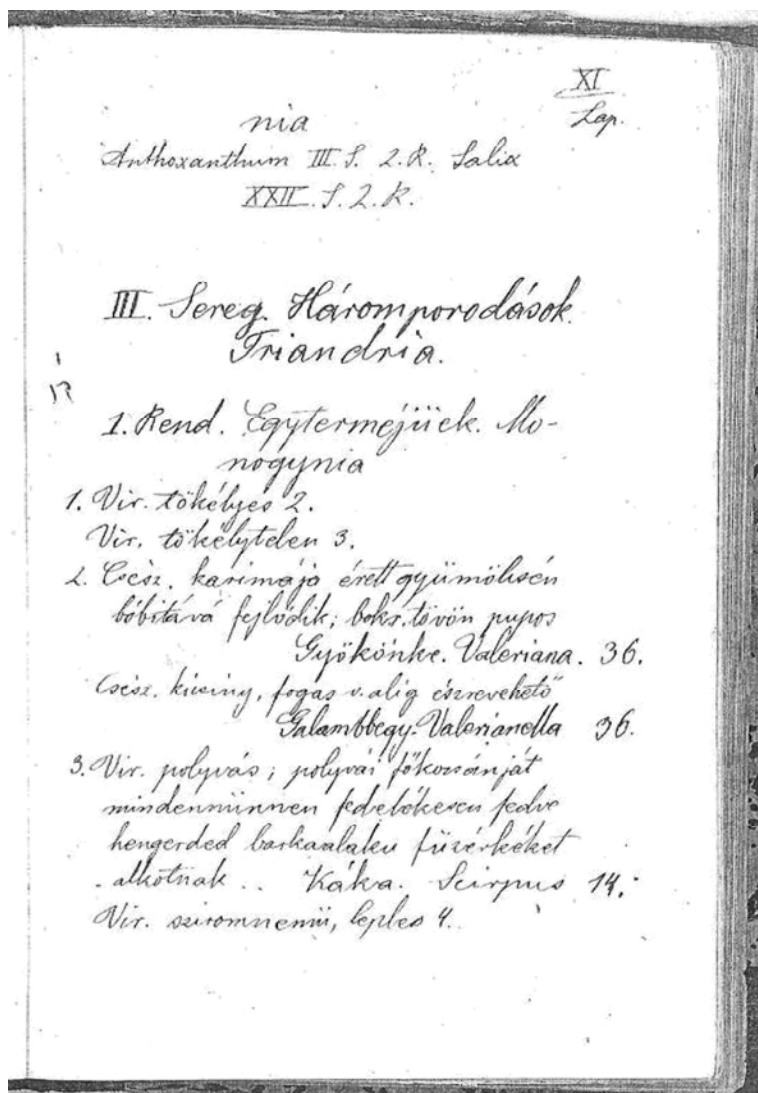 XI
Lap.
nia
Anthoxanthum III. S. 2. R. Salix
XXII. S. 2. R.
III. Sereg. Háromporodások.
Triandria.
1. Rend. Egyterméjüek. Mo-
nogynia
1. Vir. tökélyes 2.
Vir. tökélytelen 3.
2. Csész. karimája érett gyümölcsén
bóbitává fejlődik; bokr. tövön pupos
Gyökönke. Valeriana. 36.
Csész. kicsiny, fogas v. alig észrevehető
Galambbegy. Valerianella 36.
3. Vir. polyvás; polyvái
mindenünnen fedve
hengerded barkaalaku füzérkéket
alkotnak .. Káka. Scirpus 14.
Vir. sziromnemü, leples 4.